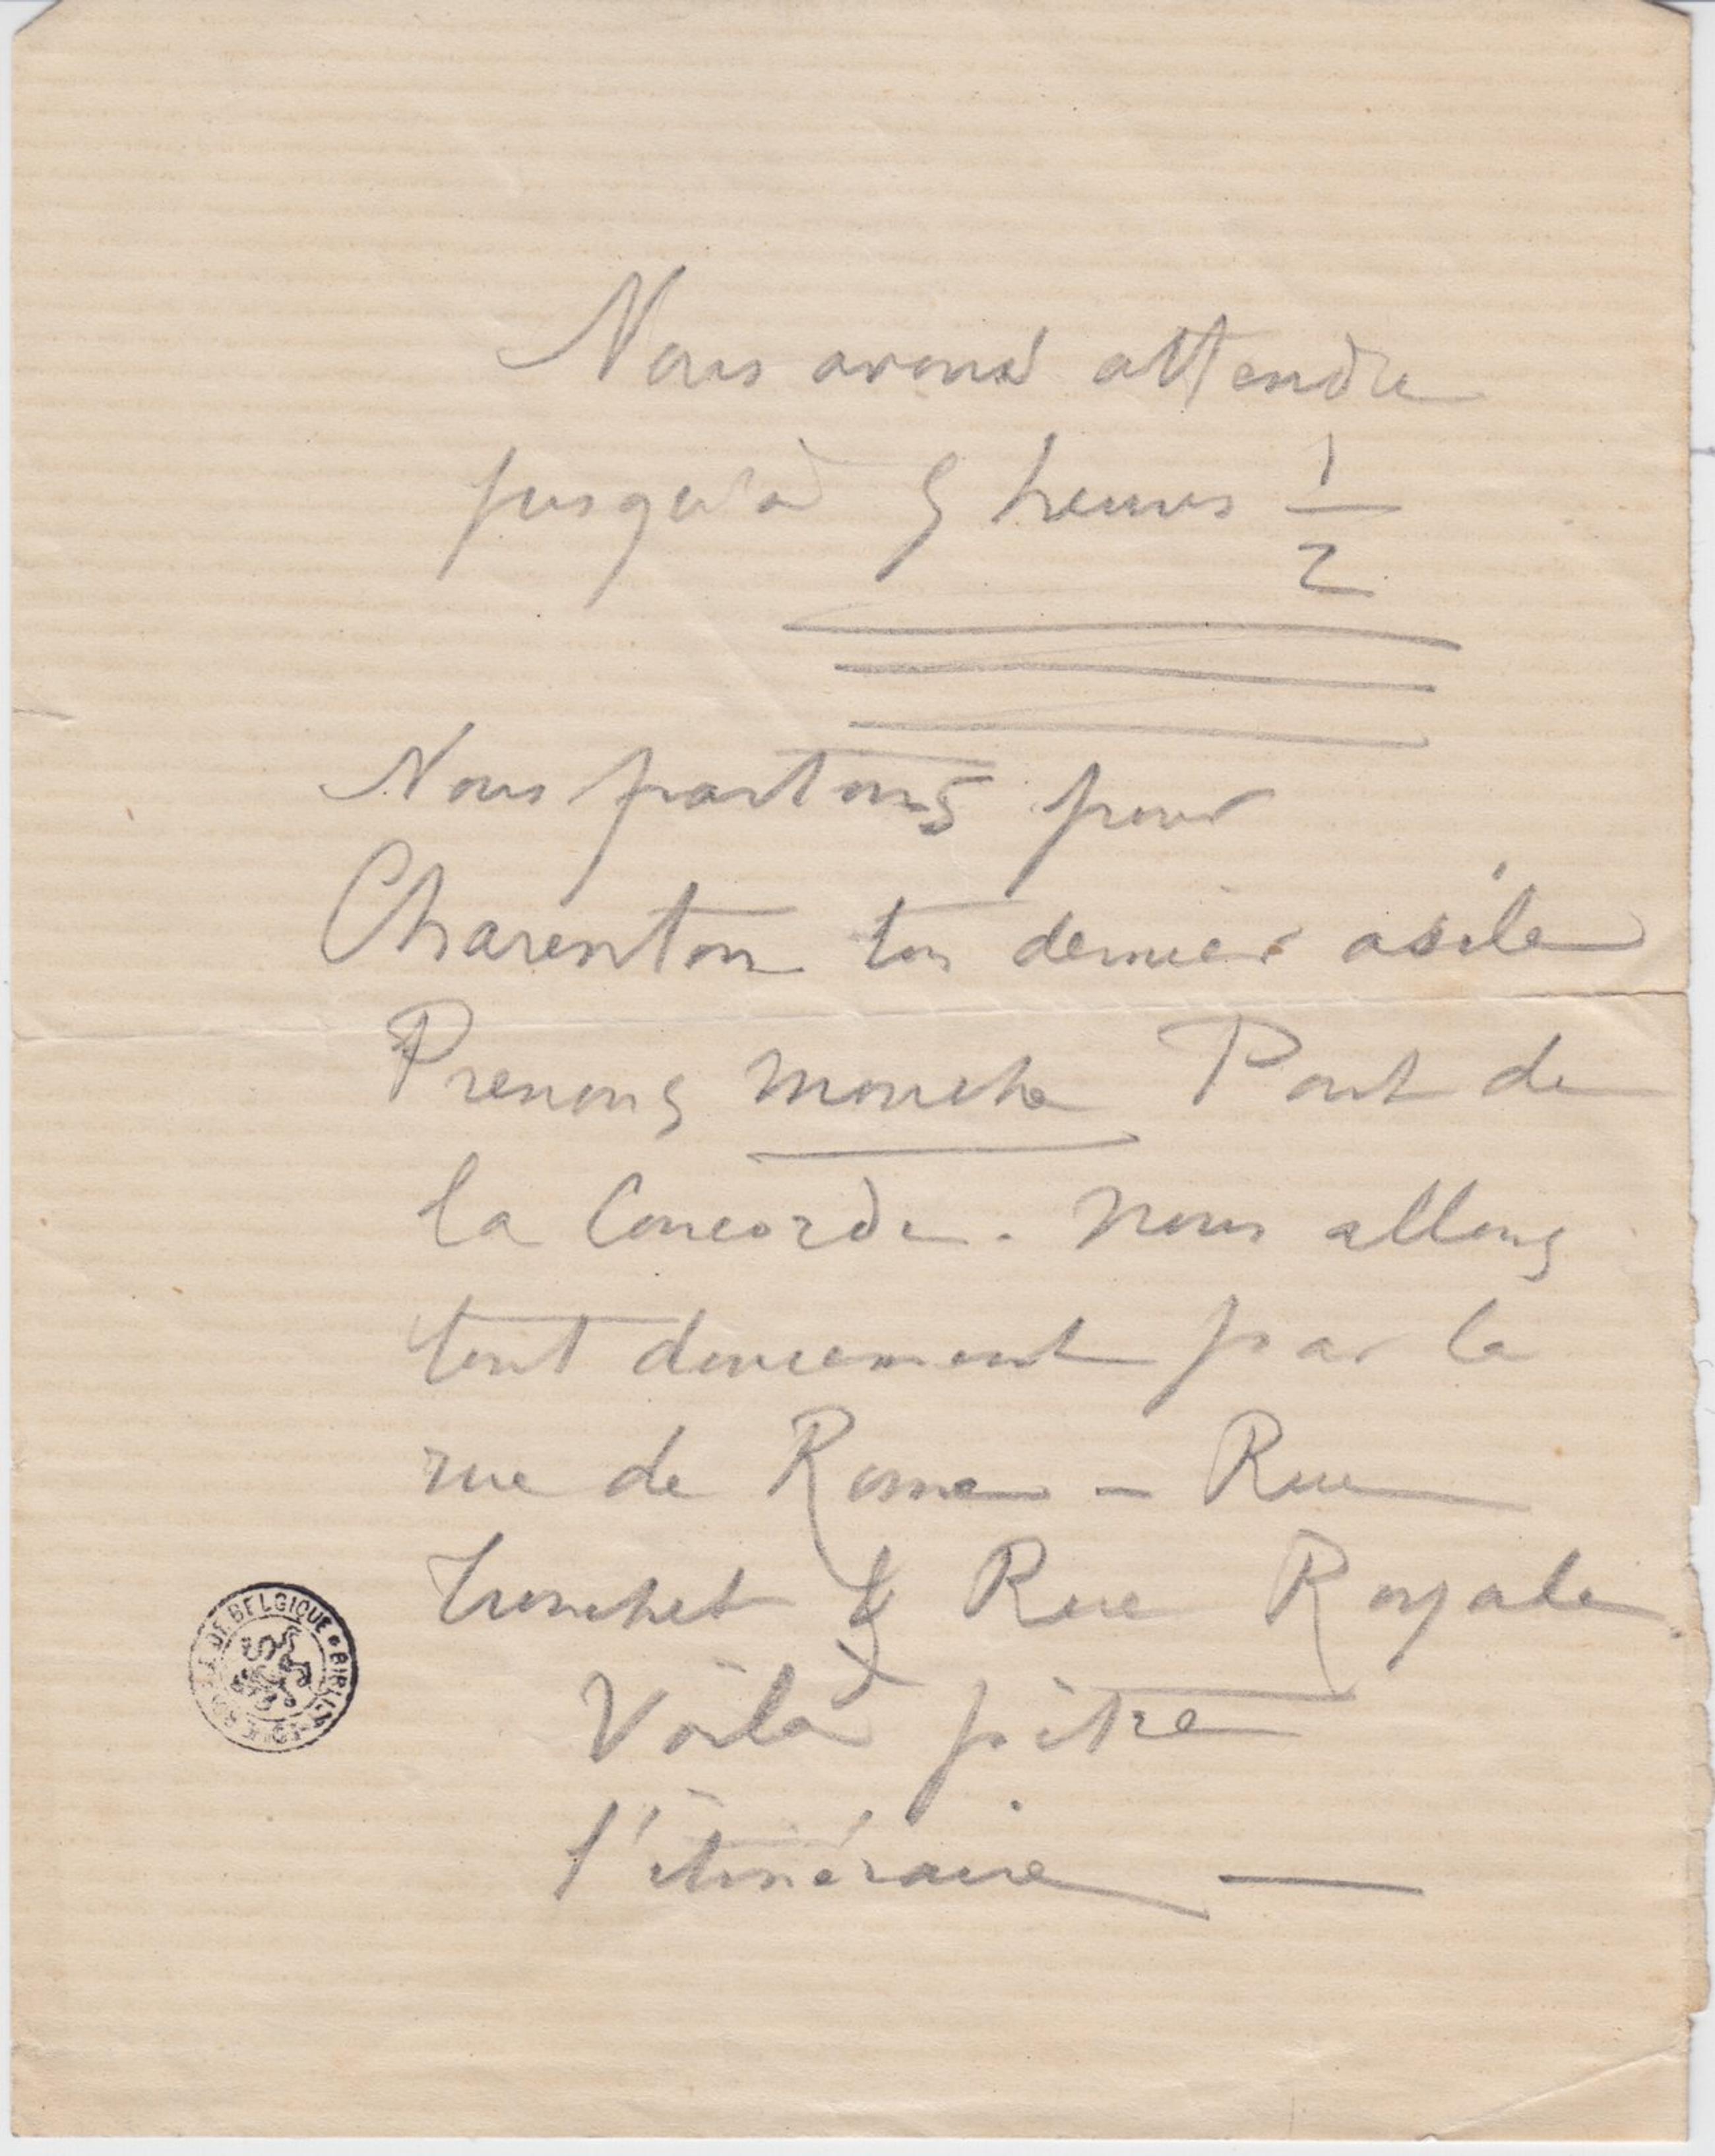 Nous avons attendu
jusqu'à 5 heures 1/2
Nous partons pour
Charenton ton dernier asile
Prenons mouche Pont de
la Concorde. Nous allons
tout doucement par la
rue de Rome – Rue
Tronchet & Rue Royale.
Voilà pitre
l'itinéraire —
DE BELGIQUE * BIBL